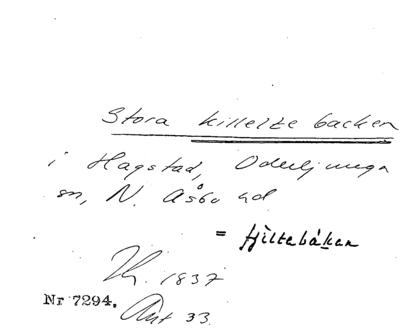 Stora killeke backen
i Hagstad, Oderljunga
sn, N. Åsbo hd
= fjiltebåken
Th. 1837
Nr 7294. Ant 33